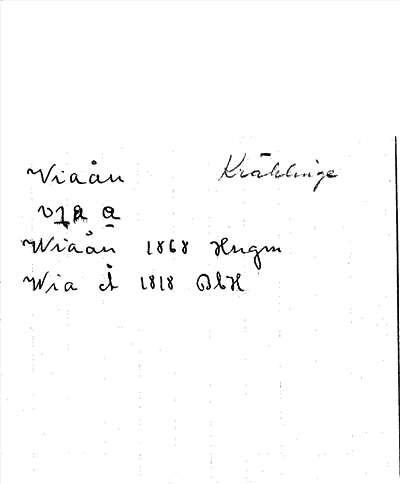 Wiaån Kräklinge
Wiaån 1868 Hngm
Wia Å 1818 BlH